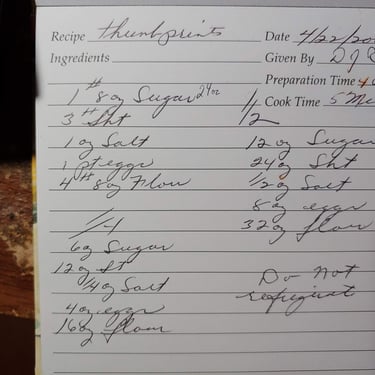 Recipe thumbprints Date 4/22/20
Ingredients Given By D J
Preparation Time
Cook Time 5 Mi
1# 8oz Sugar 24oz
3# Sht
1 oz Salt
1 pt eggs
4# 8 oz Flour
1/4
6oz Sugar
12oz St
1/4 oz Salt
4oz eggs
16oz flour
1/2
12 oz Sugar
24oz Sht
1/2 oz Salt
8oz eggs
32oz flour
Do Not
refrigirat